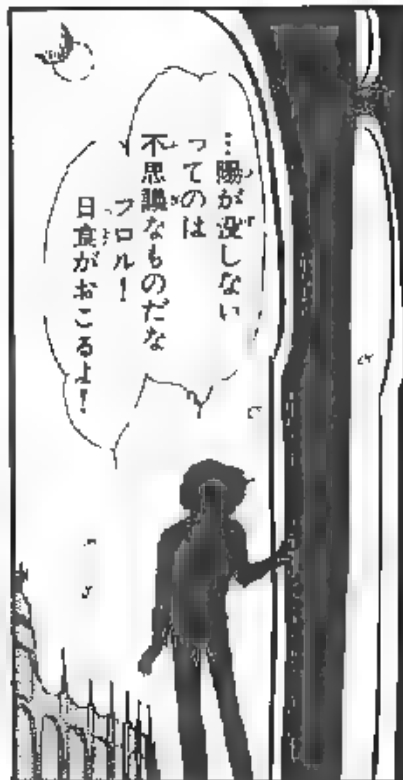 …陽が没しない
ってのは
不思議なものだな
フロル！
日食がおこるよ！